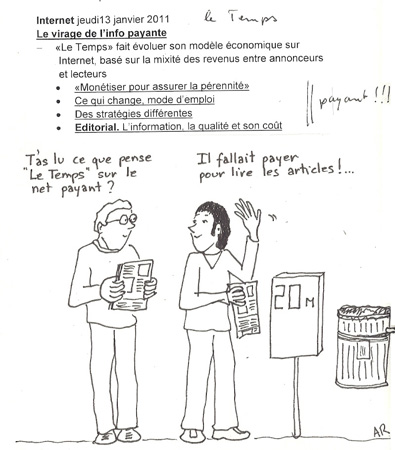 Internet jeudi13 janvier 2011
le Temps
Le virage de l'info payante
– «Le Temps» fait évoluer son modèle économique sur
Internet, basé sur la mixité des revenus entre annonceurs
et lecteurs
• «Monétiser pour assurer la pérennité»
• Ce qui change, mode d'emploi
• Des stratégies différentes
• Editorial. L'information, la qualité et son coût
payant !!!
T'as lu ce que pense
"Le Temps" sur le
net payant ?
Il fallait payer
pour lire les articles !...
20 M
AR